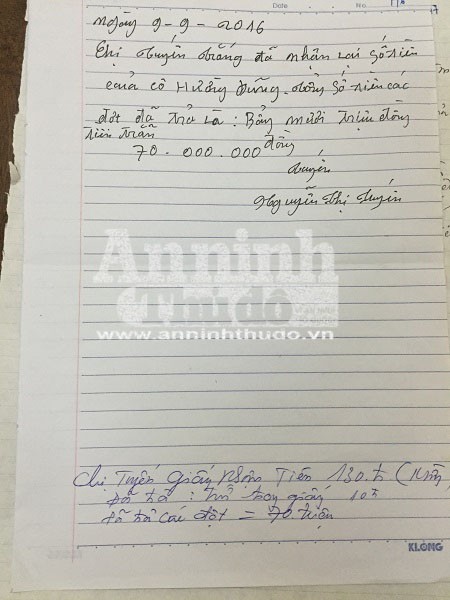 Date
ngày 9-9-2016
Chị Tuyến Trắng đã nhận lại số tiền
của cô Hường Dũng. Tổng số tiền các
đợt đã trả là: Bảy mươi triệu đồng
tiền trẵn
70.000.000 đồng
Tuyến
Nguyễn Thị Tuyến
An ninh
Thủ đô
www.anninhthudo.vn
Chị Tuyến Giấy Nhận Tiền 130.tr
Đã trả : trong giấy 10tr
Đã trả các đợt = 70. triệu
KLONG